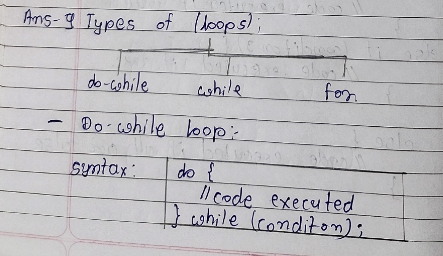 Ans-9 Types of (loops):
do-while while for
- Do-while loop:-
syntax: do {
//code executed
} while (conditon);